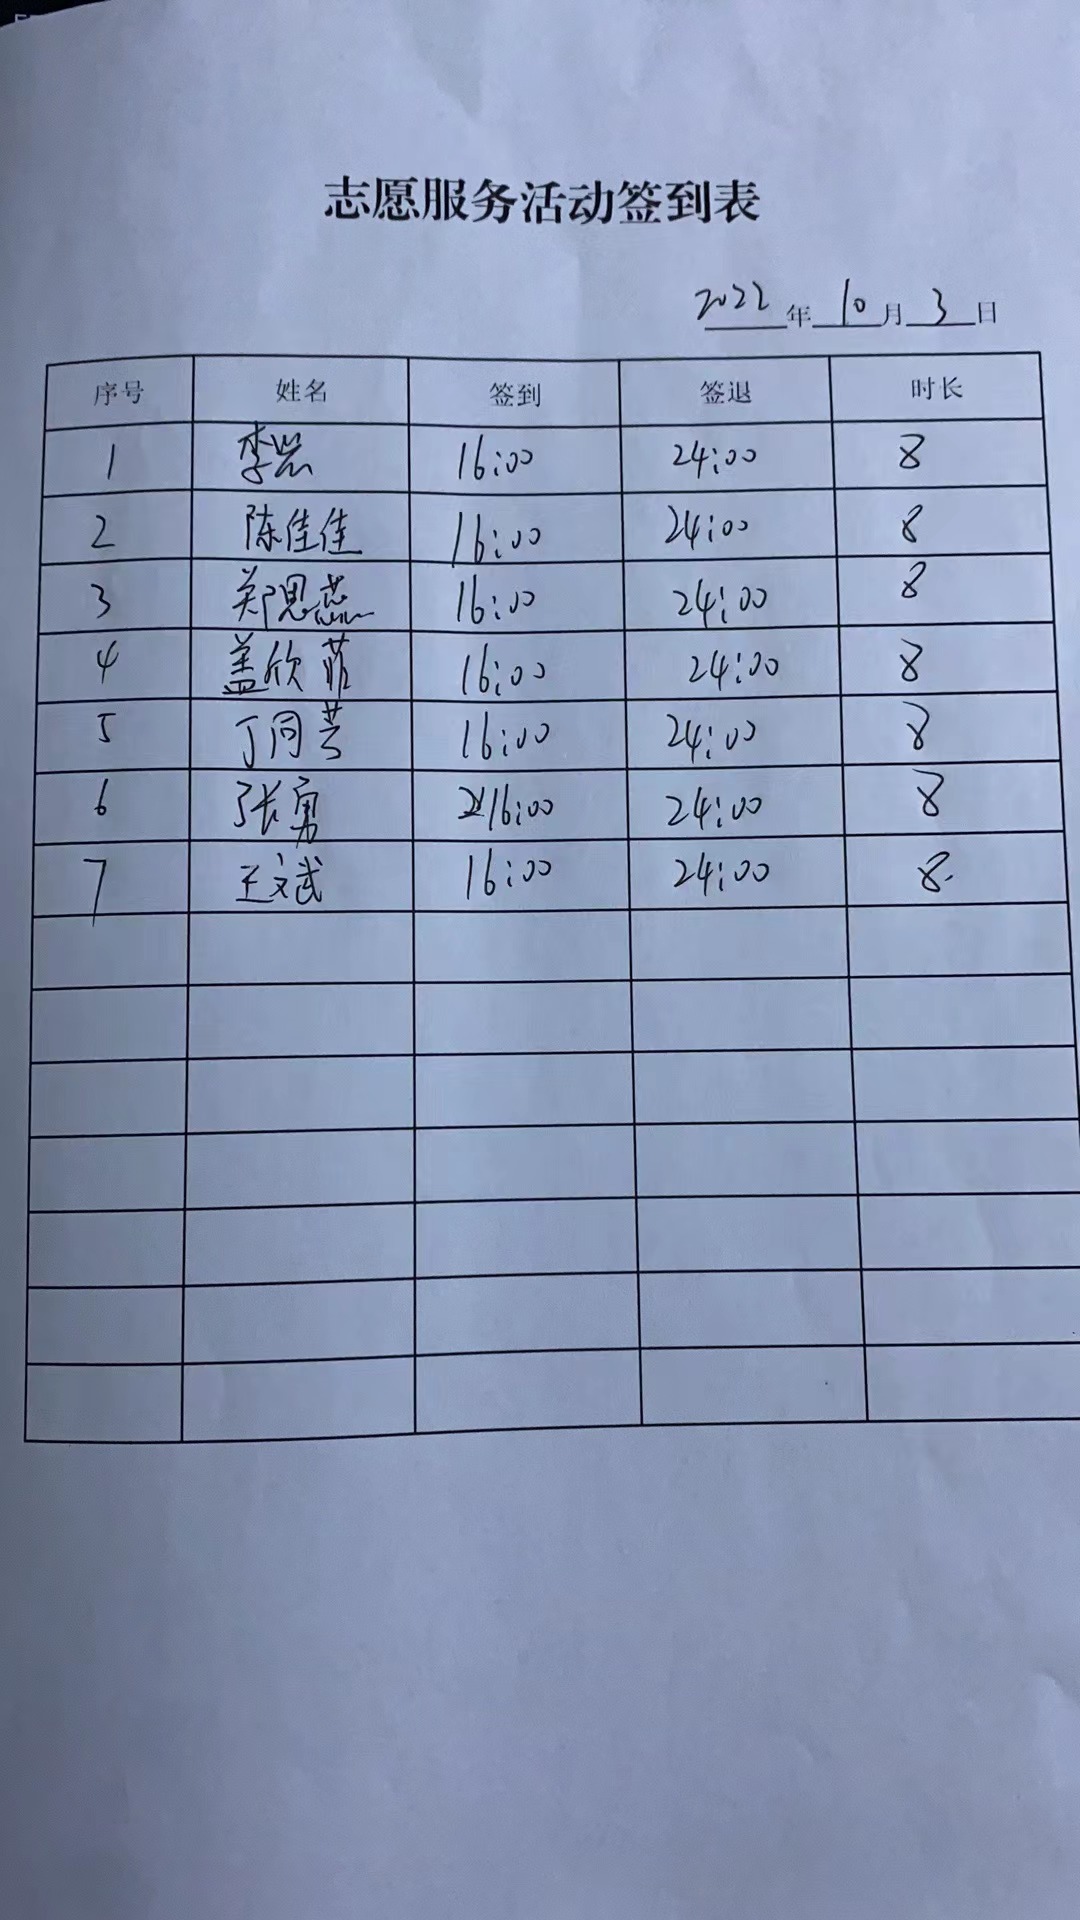 志愿服务活动签到表
2022年10月3日
序号 姓名 签到 签退 时长
1 李 16:00 24:00 8
2 陈佳佳 16:00 24:00 8
3 郑思蕊 16:00 24:00 8
4 盖欣菲 16:00 24:00 8
5 丁同芳 16:00 24:00 8
6 张勇 16:00 24:00 8
7 王文斌 16:00 24:00 8.